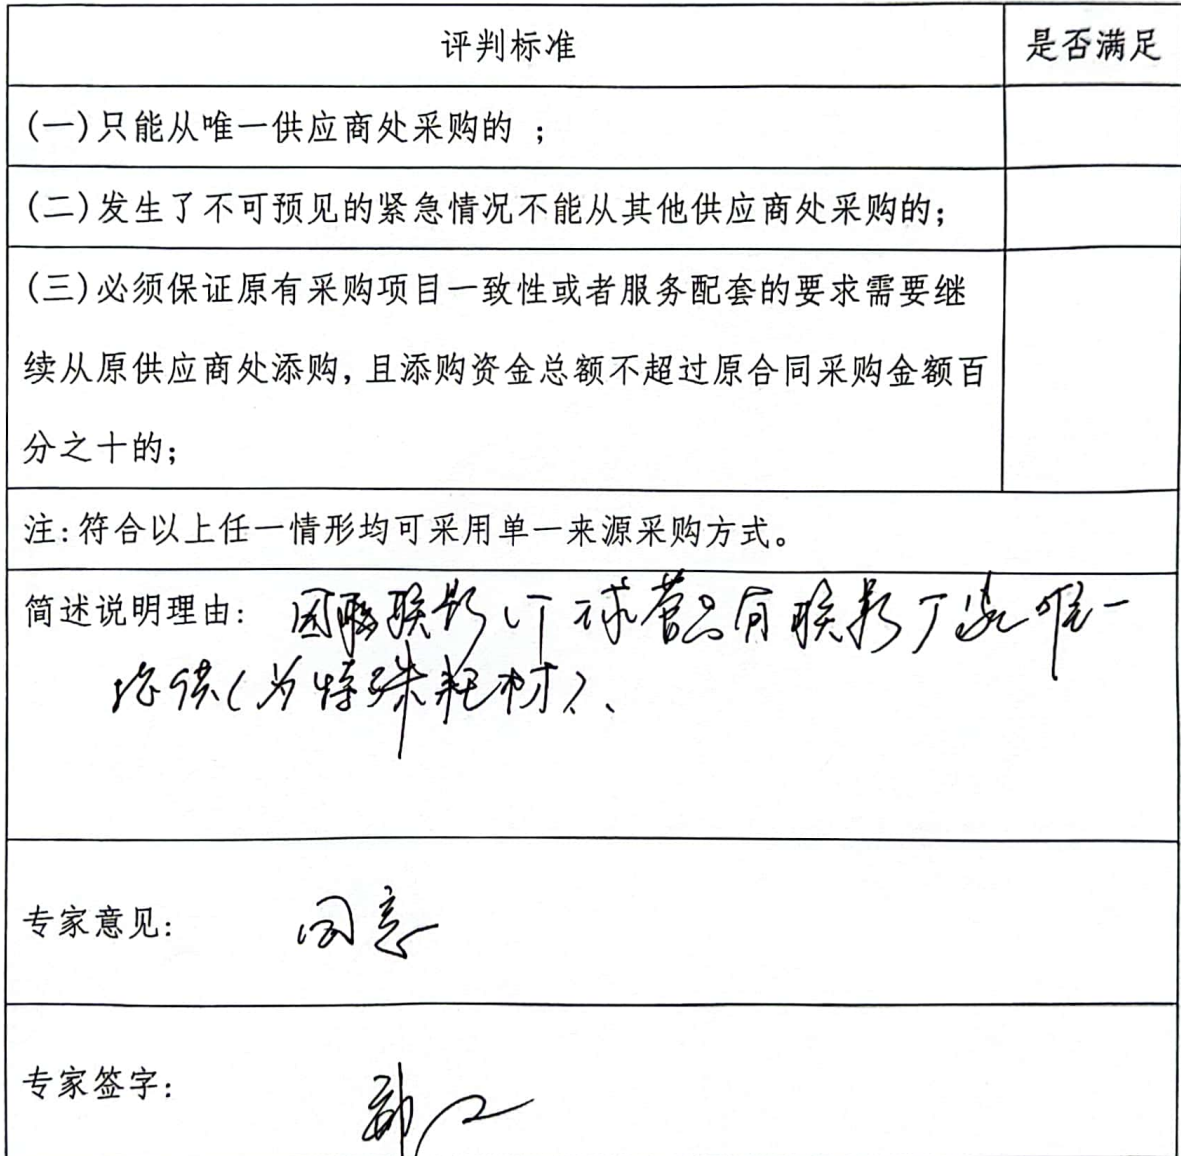 评判标准
是否满足
(一)只能从唯一供应商处采购的 ;
(二)发生了不可预见的紧急情况不能从其他供应商处采购的;
(三)必须保证原有采购项目一致性或者服务配套的要求需要继
续从原供应商处添购,且添购资金总额不超过原合同采购金额百
分之十的;
注:符合以上任一情形均可采用单一来源采购方式。
简述说明理由: 因联影CT球管只有联影厂家唯一
提供(为特殊耗材)、
专家意见: 同意
专家签字: